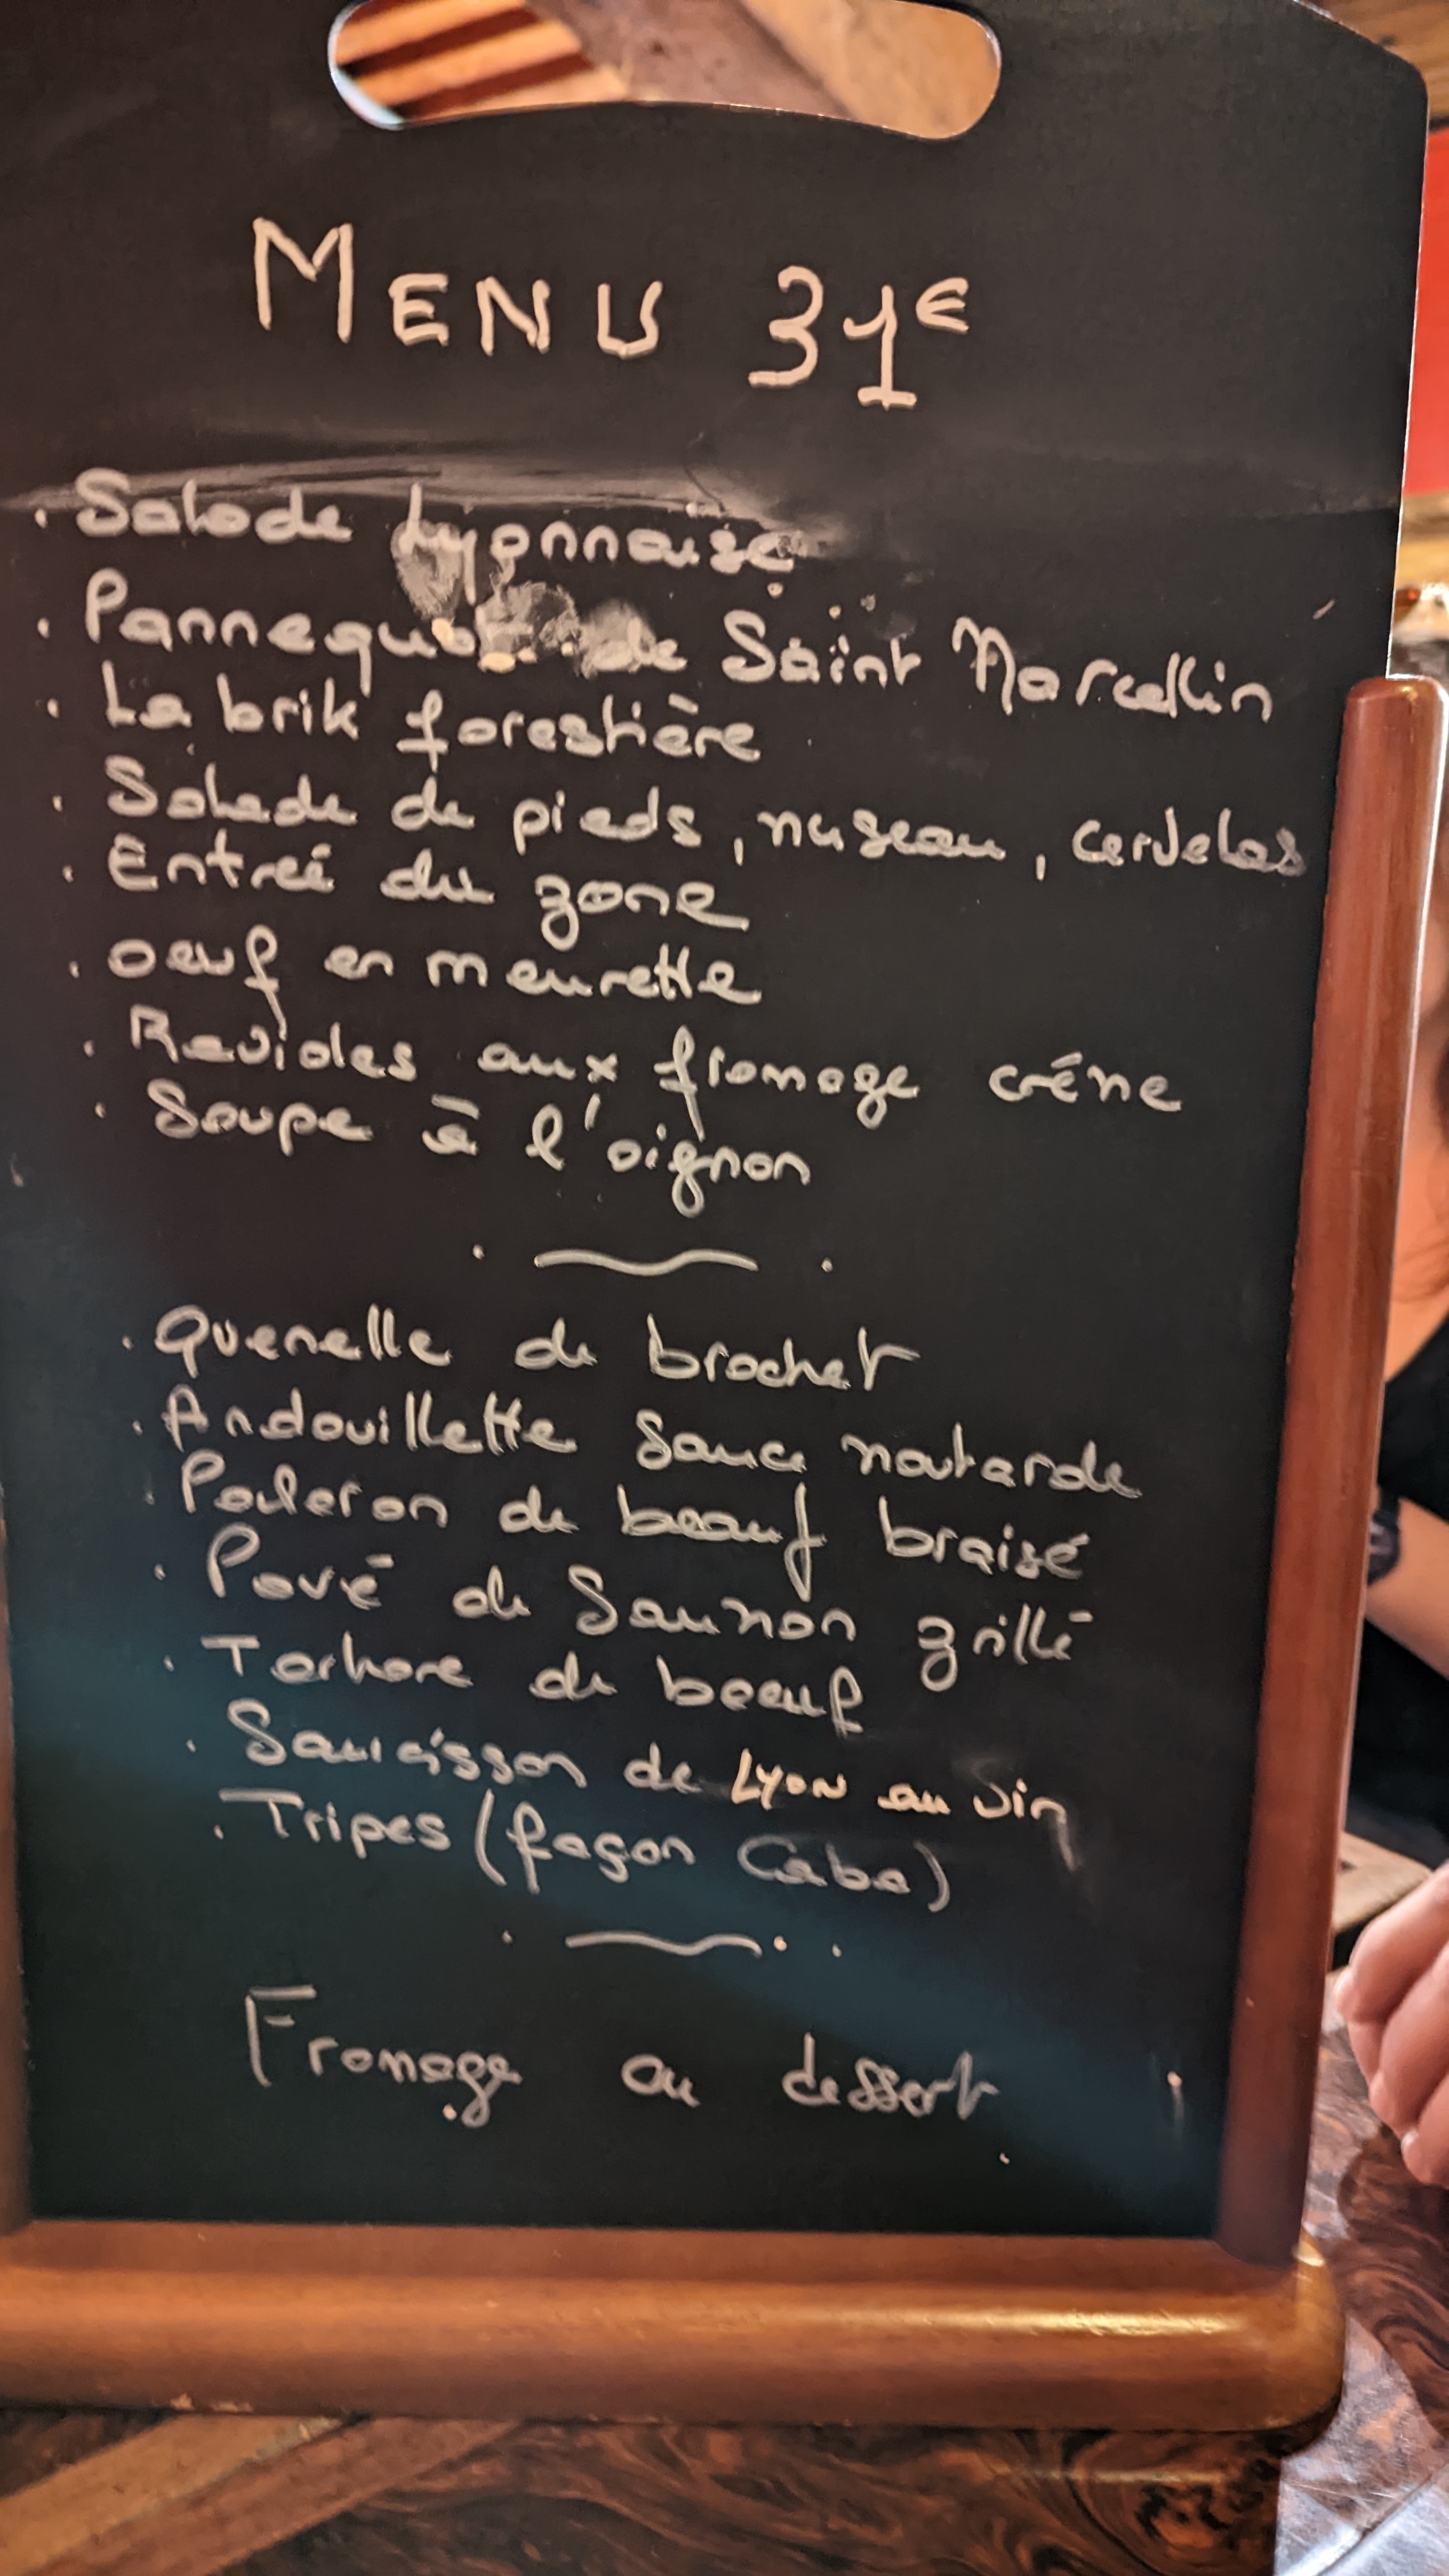 MENU 31€
. Salade Lyonnaise
. Pannequ de Saint Marcellin
. La brik forestière
. Salade de pieds, museau, cervelas
. Entreé du zone
. oeuf en meurette
. Ravioles aux fromage crème
. Soupe à l'oignon
. Quenelle de brochet
. Andouillette Sauce moutarde
. Paleron de boeuf braisé
. Pavé de Saumon grillé
. Tartare de boeuf
. Saucisson de LYON au vin
. Tripes (façon Caba)
Fromage ou dessert